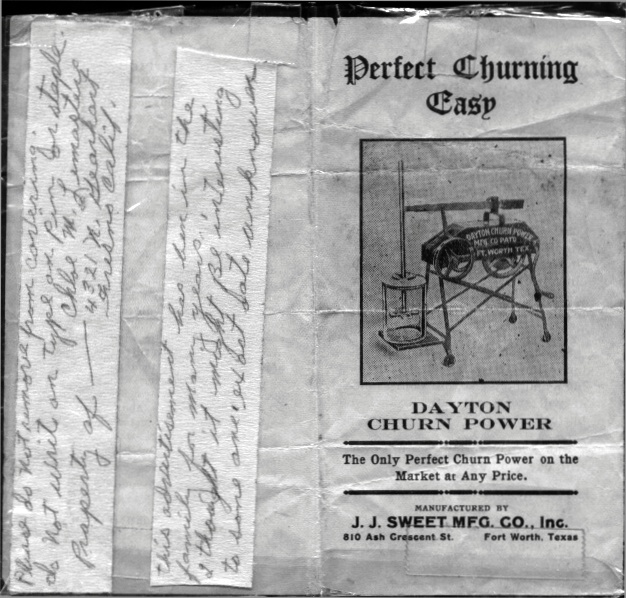 Please do not remove from covering.
do not writ or type or pin or staple.
Property of — Chloe M. Lemasters
4321 N. Gearhart
Fresno Calif.
this advertisement has ben in the
family for many years.
I thought it might be intersting
to some one; exhet date unknown
Perfect Churning
Easy
DAYTON CHURN POWER
MFG. CO PATD
FT. WORTH TEX.
DAYTON
CHURN POWER
The Only Perfect Churn Power on the
Market at Any Price.
MANUFACTURED BY
J. J. SWEET MFG. CO., Inc.
810 Ash Crescent St. Fort Worth, Texas